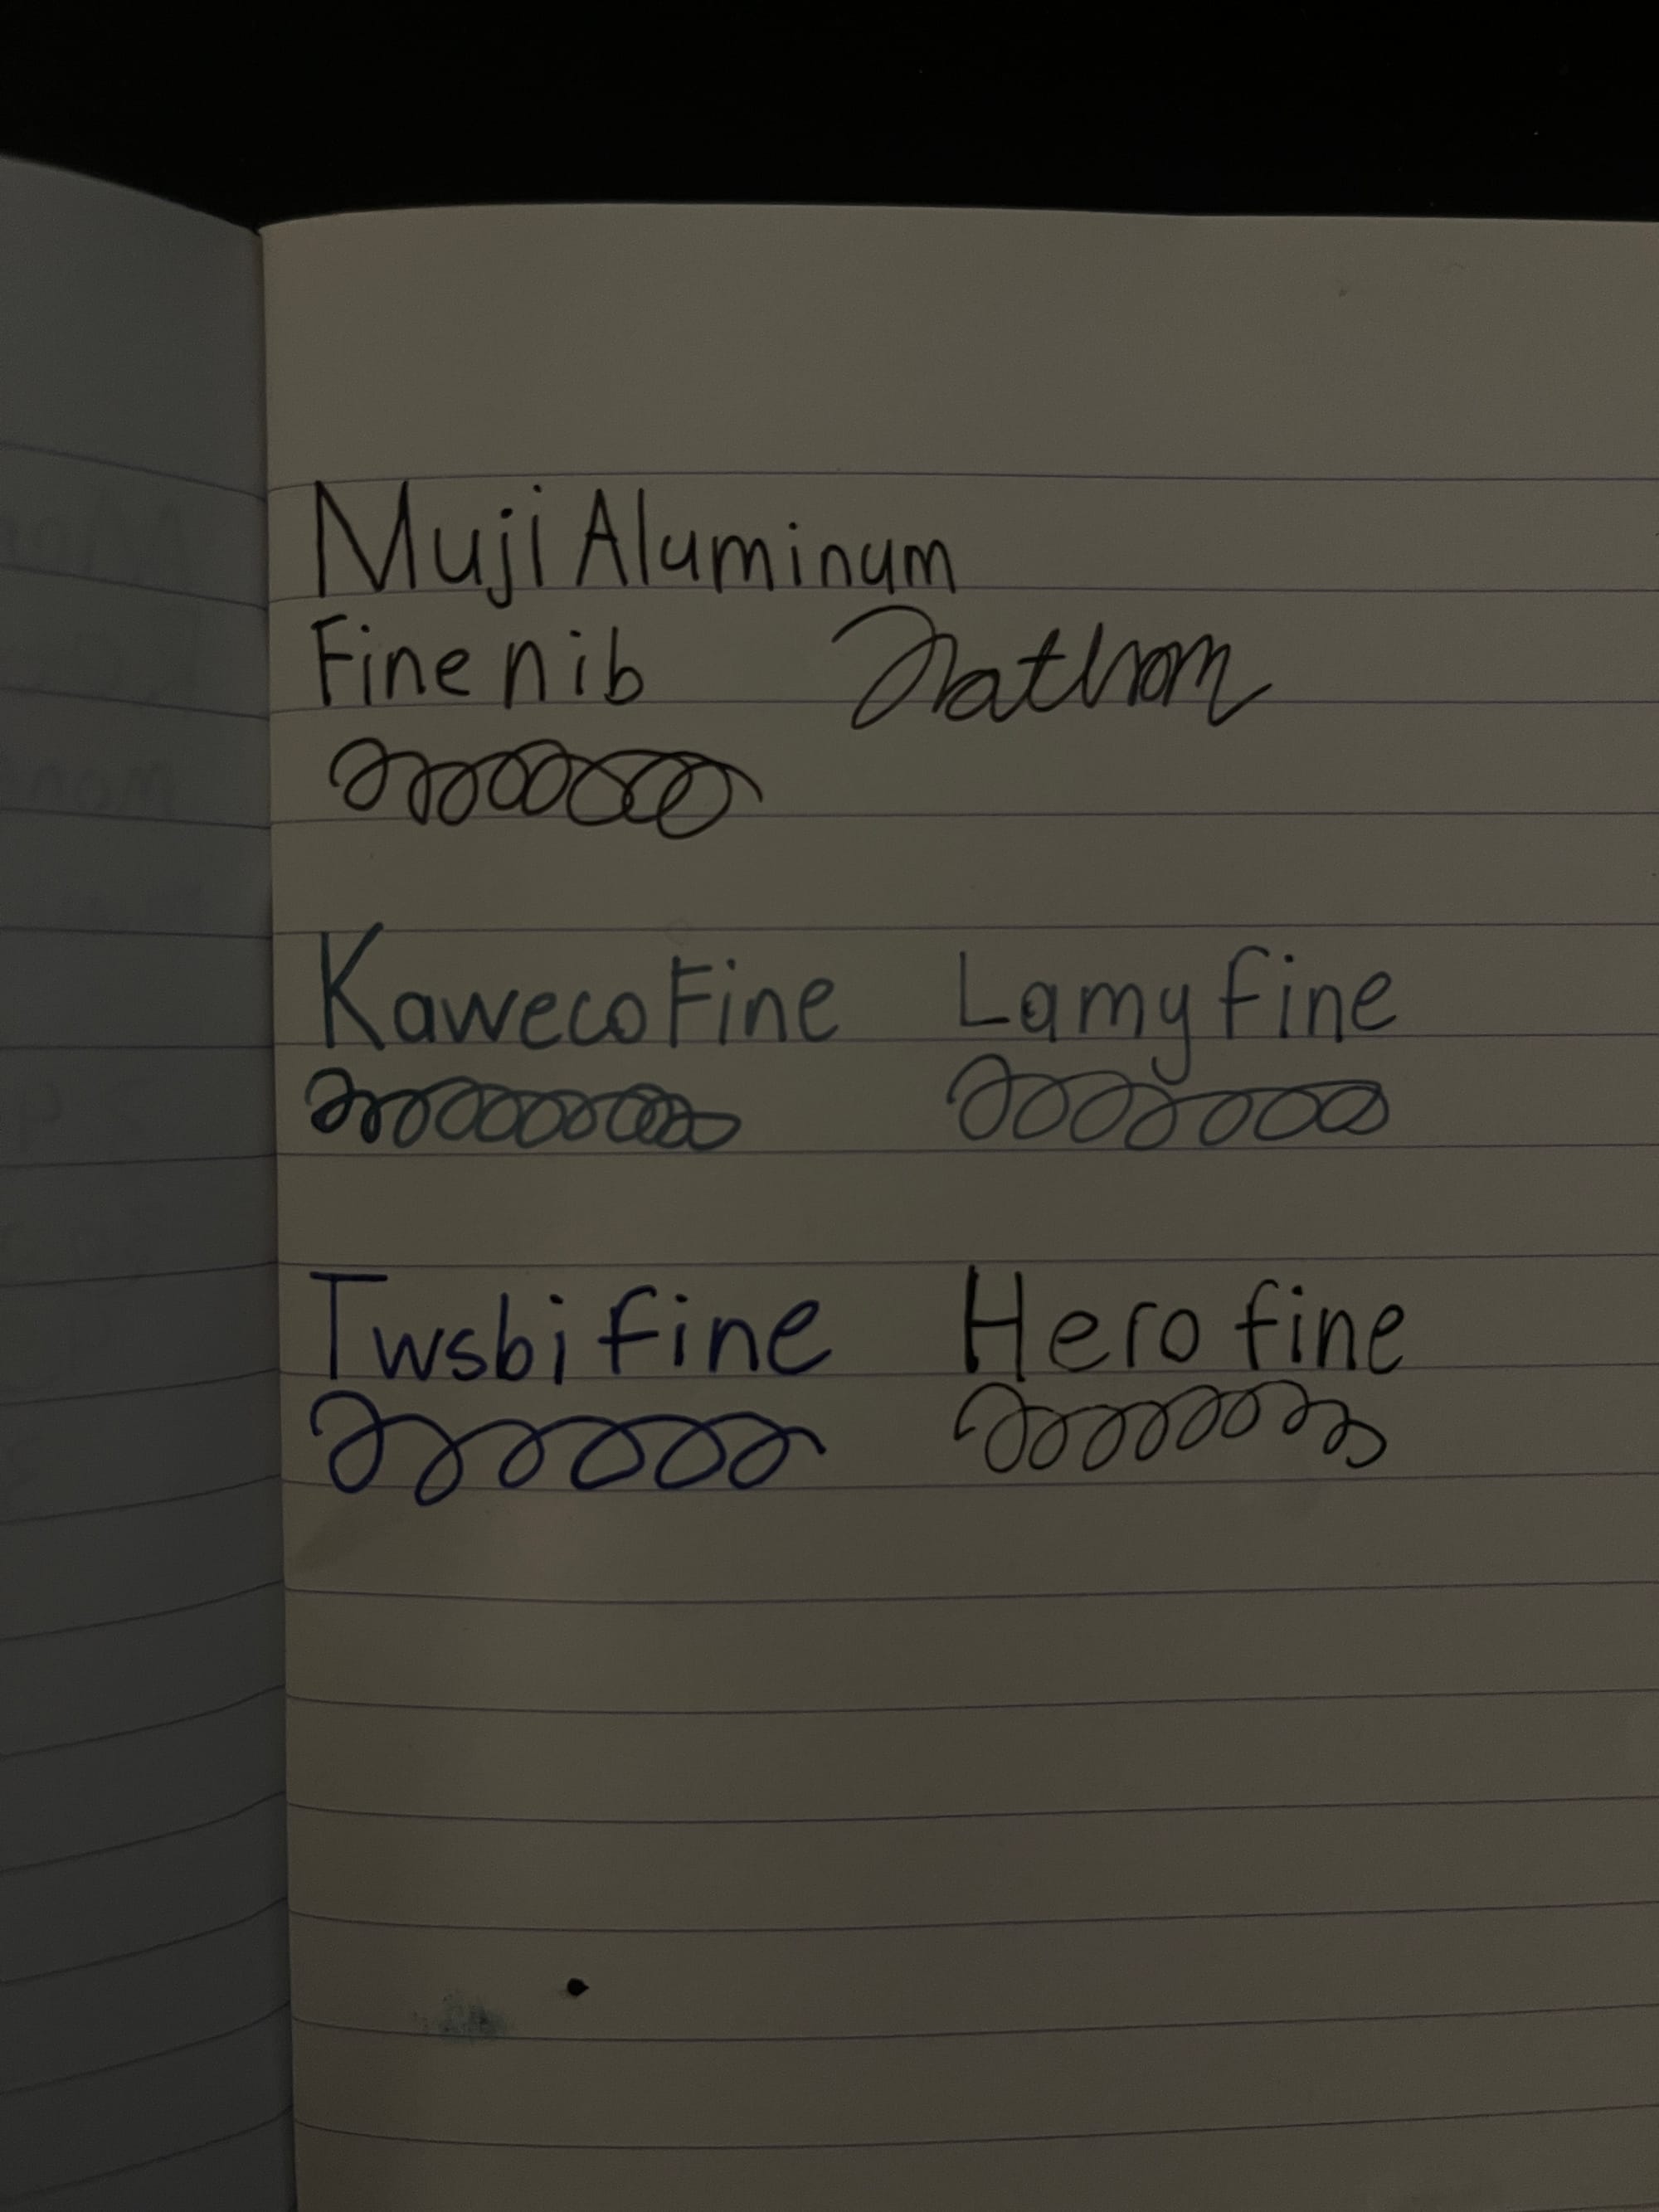 Muji Aluminum
Fine nib Nathan
Kaweco Fine Lamy fine
Twsbi fine Hero fine